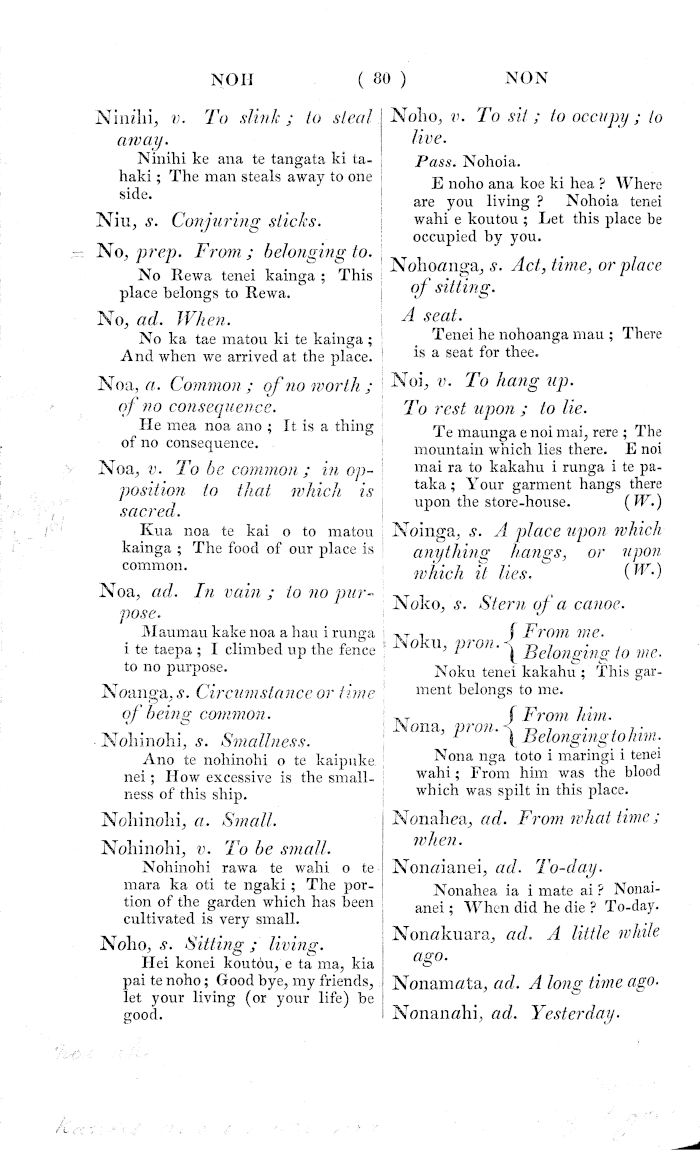 NOH ( 80 ) NON
Ninihi, v. To slink ; to steal
away.
Ninihi ke ana te tangata ki ta-
haki ; The man steals away to one
side.
Niu, s. Conjuring sticks.
No, prep. From ; belonging to.
No Rewa tenei kainga ; This
place belongs to Rewa.
No, ad. When.
No ka tae matou ki te kainga ;
And when we arrived at the place.
Noa, a. Common ; of no worth ;
of no consequence.
He mea noa ano ; It is a thing
of no consequence.
Noa, v. To be common ; in op-
position to that which is
sacred.
Kua noa te kai o to matou
kainga ; The food of our place is
common.
Noa, ad. In vain ; to no pur-
pose.
Maumau kake noa a hau i runga
i te taepa ; I climbed up the fence
to no purpose.
Noanga, s. Circumstance or time
of being common.
Nohinohi, s. Smallness.
Ano te nohinohi o te kaipuke
nei ; How excessive is the small-
ness of this ship.
Nohinohi, a. Small.
Nohinohi, v. To be small.
Nohinohi rawa te wahi o te
mara ka oti te ngaki ; The por-
tion of the garden which has been
cultivated is very small.
Noho, s. Sitting ; living.
Hei konei koutou, e ta ma, kia
pai te noho ; Good bye, my friends,
let your living (or your life) be
good.
Noho, v. To sit ; to occupy ; to
live.
Pass. Nohoia.
E noho ana koe ki hea ? Where
are you living ? Nohoia tenei
wahi e koutou ; Let this place be
occupied by you.
Nohoanga, s. Act, time, or place
of sitting.
A seat.
Tenei he nohoanga mau ; There
is a seat for thee.
Noi, v. To hang up.
To rest upon ; to lie.
Te maunga e noi mai, rere ; The
mountain which lies there. E noi
mai ra to kakahu i runga i te pa-
taka ; Your garment hangs there
upon the store-house. (W.)
Noinga, s. A place upon which
anything hangs, or upon
which it lies. (W.)
Noko, s. Stern of a canoe.
Noku, pron. { From me.
Belonging to me.
Noku tenei kakahu ; This gar-
ment belongs to me.
Nona, pron. { From him.
Belonging to him.
Nona nga toto i maringi i tenei
wahi ; From him was the blood
which was spilt in this place.
Nonahea, ad. From what time ;
when.
Nonaianei, ad. To-day.
Nonahea ia i mate ai ? Nonai-
anei ; When did he die ? To-day.
Nonakuara, ad. A little while
ago.
Nonamata, ad. A long time ago.
Nonanahi, ad. Yesterday.